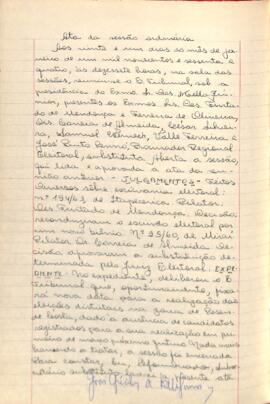 Ata da sessão ordinária
Aos vinte e um dias do mês de ja-
neiro de um mil novecentos e sessenta e
quatro, às dezessete horas, na sala das
sessões, reuniu-se o E. Tribunal, sob a
presidência do Exmo. Sr. Des. Mello Jú-
nior, presentes os Exmos. Srs. Des. Furta-
do de Mendonça e Ferreira de Oliveira,
Drs. Correia de Almeida, César Silvei-
ra, Samuel Valle Ferreira, e
José Pinto Renó, Procurador Regional
Eleitoral, substituto. Aberta a sessão,
foi lida e aprovada a ata da ses-
são anterior. - JULGAMENTOS - Feitos
diversos sôbre escrivania eleitoral:
nº 194/63, de Itapecerica. Relator:
Des. Furtado de Mendonça. Decisão:
reconduziram o escrivão eleitoral por
um novo biênio. Nº 25/60, de
Relator: Dr. Correia de Almeida. De-
cisão: aprovaram a substituição de-
terminada pelo Juiz Eleitoral. EXPE-
DIENTE - No expediente, deliberou o E.
Tribunal que, oportunamente, fixa-
rá nova data para a realização das
eleições distritais na zona de
da ausência de candidatos
registrados para a sua realização em pri-
meiro de março próximo. Nada mais
havendo a tratar, a sessão foi encerrada.
Para constar, eu,
a presente ata.